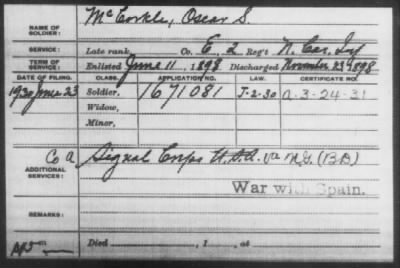 NAME OF SOLDIER: McCorkle, Oscar S.
SERVICE: Late rank, Co. E, 2 Reg't N. Car. Inf
TERM OF SERVICE: Enlisted June 11, 1898 Discharged November 23, 1898
DATE OF FILING. CLASS. APPLICATION NO. LAW. CERTIFICATE NO.
1930 June 23 Soldier, 1671081 J-2-30 a-3-24-31
Widow,
Minor,
ADDITIONAL SERVICES: Co A Signal Corps U.S.A. Va N.G. (BD)
War with Spain.
REMARKS:
Died , 1 , at